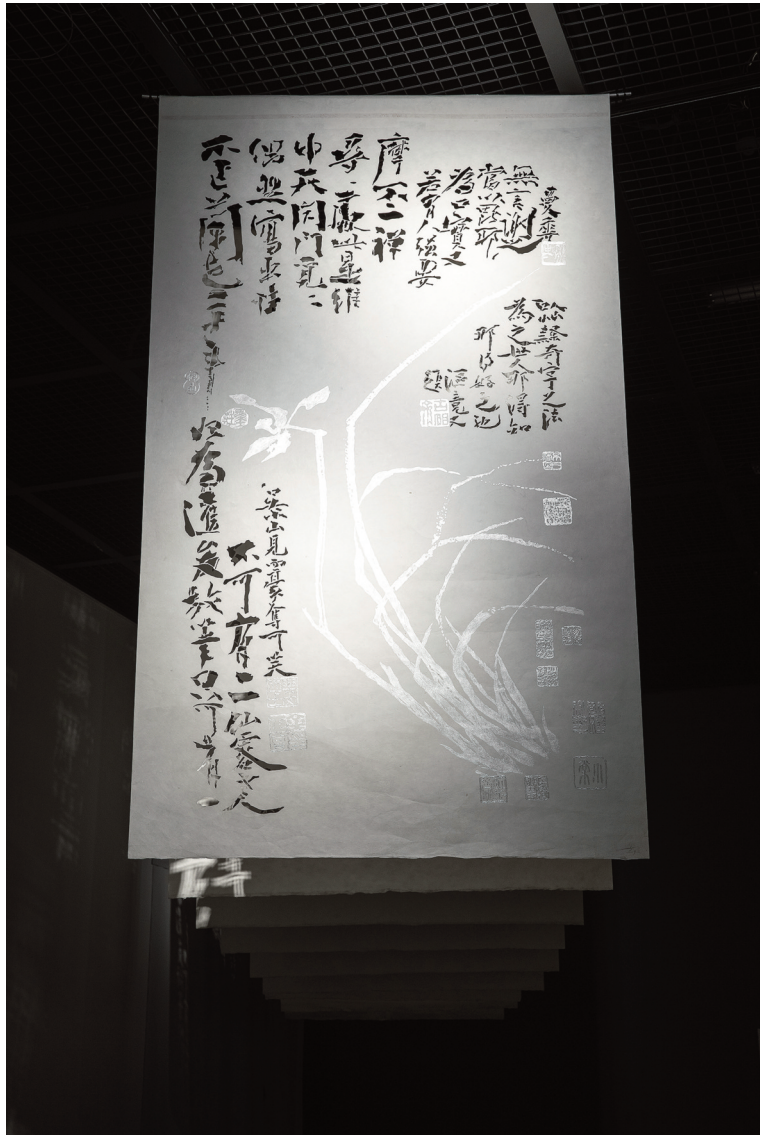 不正蘭花二十年
偶然寫出性
中天閉門覓々
尋々處此是維
摩不二禪
若有人强要
為口實又
當以毘耶
無言謝之
曼香
以艸隸奇字之法
為之世人那得知
那得好之也
漚竟又
題
始為達夋放筆只可有一
不可有二仙客老人
吳小山見而豪奪可笑